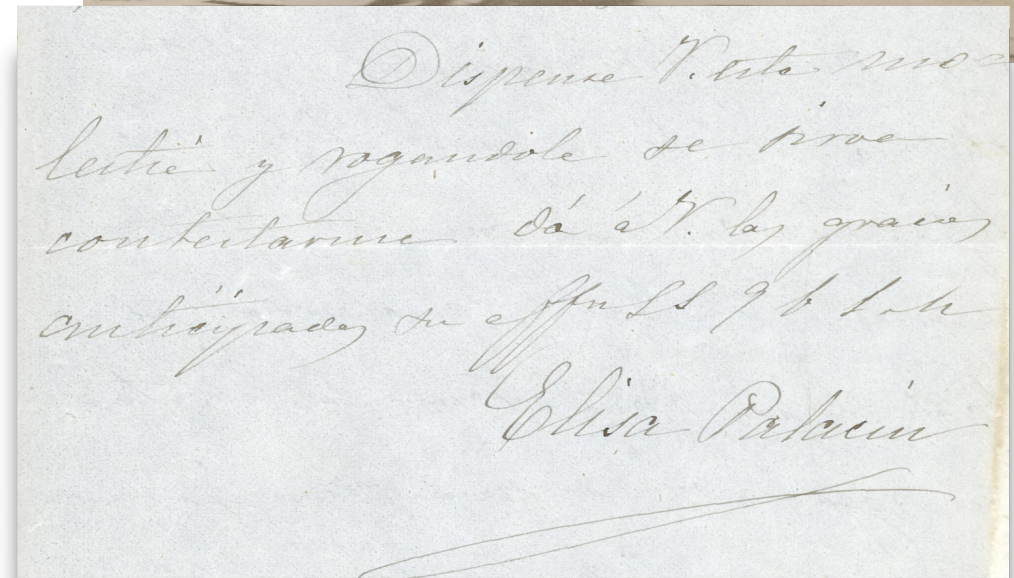 Dispense V. esta mo=
lestia y rogandole se sirva
contestarme dá á V. las gracias
anticipadas su affma S S q b s. m
Elisa Palacin